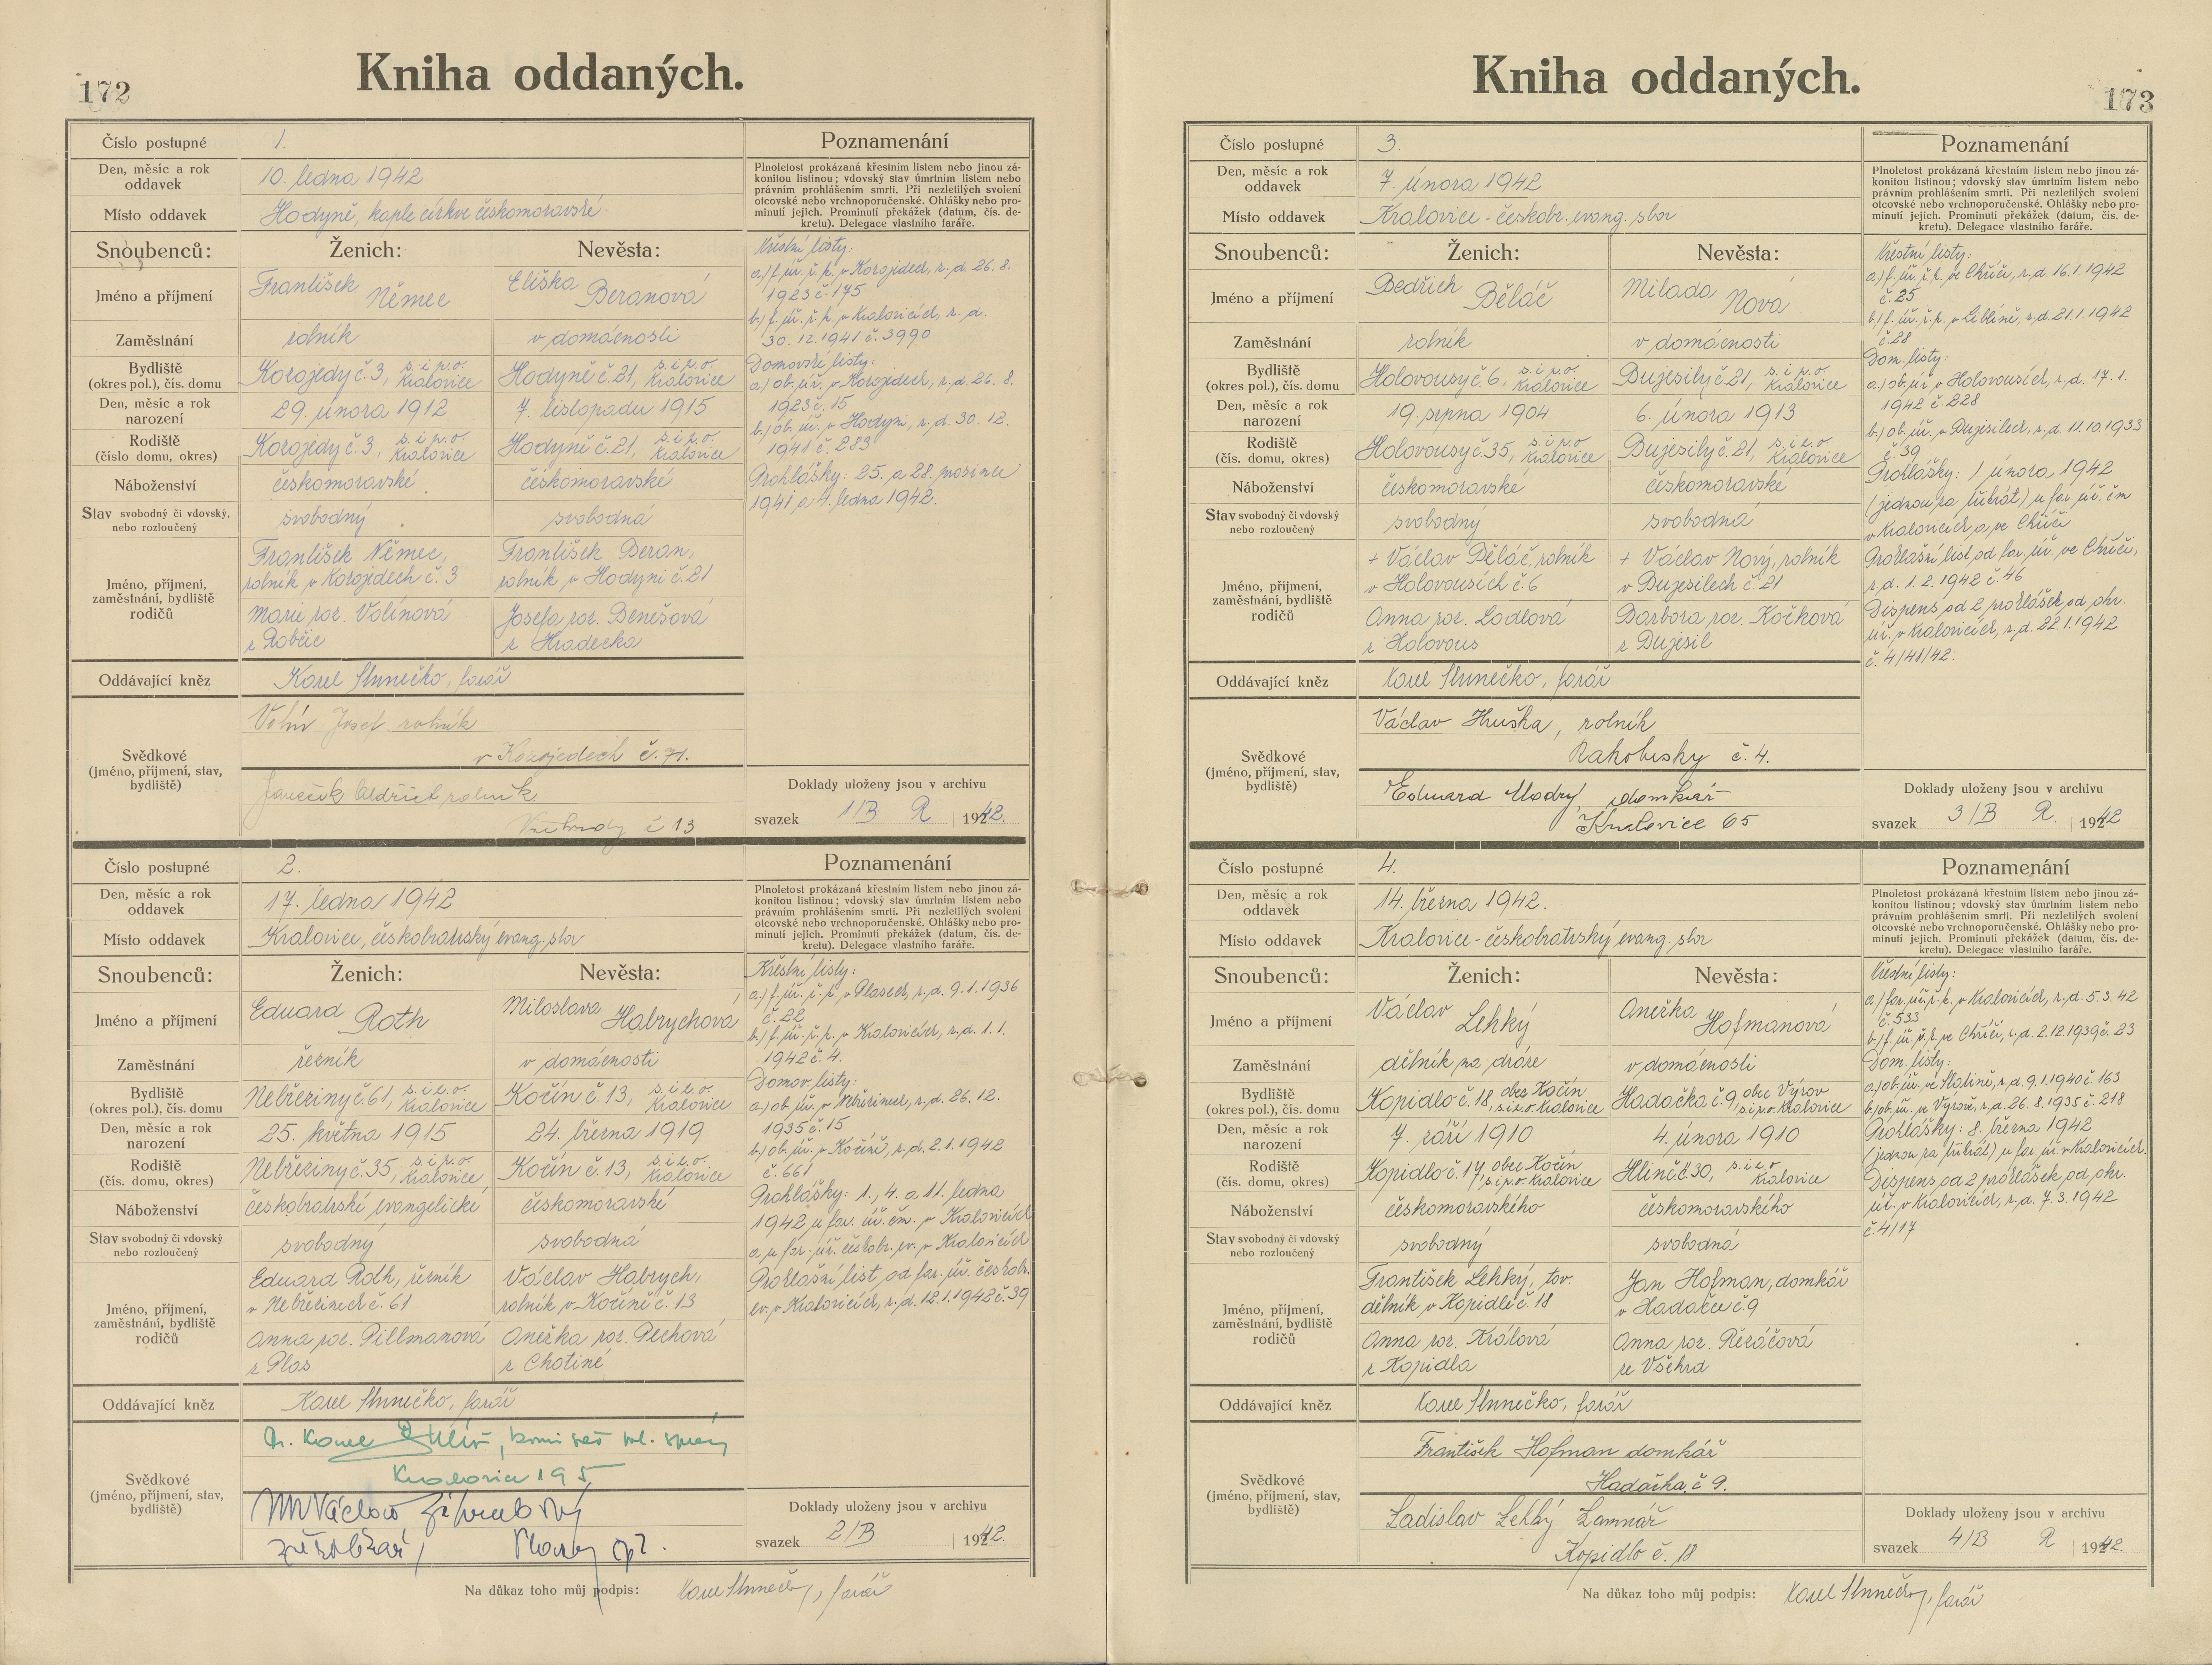 172
Kniha oddaných.
Číslo postupné
1.
Den, měsíc a rok
oddavek
10. ledna 1942
Místo oddavek
Hodyně, kaple církve českomoravské
Poznamenání
Plnoletost prokázaná křestním listem nebo jinou zá-
konitou listinou; vdovský stav úmrtním listinem nebo
právním prohlášením smrti. Při nezletilých svolení
otcovské nebo vrchnoporučenské. Ohlášky nebo pro-
minutí jejich. Prominutí překážek (datum, čís. de-
kretu). Delegace vlastního faráře.
Snoubenců:
Ženich:
Nevěsta:
Jméno a příjmení
František Němec
Eliška Beranová
Zaměstnání
rolník
v domácnosti
Bydliště
(okres pol.), čís. domu
Kozojedy č. 3, s. i p. o. Kralovice
Hodyně č. 21, s. i p. o. Kralovice
Den, měsíc a rok
narození
29. února 1912
7. listopadu 1915
Rodiště
(číslo domu, okres)
Kozojedy č. 3, s. i p. o. Kralovice
Hodyně č. 21, s. i p. o. Kralovice
Náboženství
českomoravské
českomoravské
Stav svobodný či vdovský,
nebo rozloučený
svobodný
svobodná
Jméno, příjmení,
zaměstnání, bydliště
rodičů
František Němec,
rolník v Kozojedech č. 3
Marie roz. Volínová
z Robčic
František Beran,
rolník v Hodyni č. 21
Josefa roz. Benešová
z Hradecka
Křestní listy:
a.) f. úř. ř. k. v Kozojedech, z. d. 26. 8.
1923 č. 175
b.) f. úř. ř. k. v Kralovicích, z. d.
30. 12. 1941 č. 3990
Domovské listy:
a.) ob. úř. v Kozojedech, z. d. 26. 8.
1923 č. 15
b.) ob. úř. v Hodyni, z. d. 30. 12.
1941 č. 283
Prohlášky: 25. a 28. prosince
1941 a 4. ledna 1942.
Oddávající kněz
Karel Slunečko, farář
Svědkové
(jméno, příjmení, stav,
bydliště)
Josef rolník
v Kozojedech č. 71.
Oldřich rolník
č 13
Doklady uloženy jsou v archivu
svazek 1/B R 1942.
Číslo postupné
2.
Den, měsíc a rok
oddavek
17. ledna 1942
Místo oddavek
Kralovice, českobratrský evang. sbor
Poznamenání
Plnoletost prokázaná křestním listem nebo jinou zá-
konitou listinou; vdovský stav úmrtním listem nebo
právním prohlášením smrti. Při nezletilých svolení
otcovské nebo vrchnoporučenské. Ohlášky nebo pro-
minutí jejich. Prominutí překážek (datum, čís. de-
kretu). Delegace vlastního faráře.
Snoubenců:
Ženich:
Nevěsta:
Jméno a příjmení
Eduard Roth
Miloslava Habrychová
Zaměstnání
řezník
v domácnosti
Bydliště
(okres pol.), čís. domu
Nebřeziny č. 61, s. i p. o. Kralovice
Kočín č. 13, s. i p. o. Kralovice
Den, měsíc a rok
narození
25. května 1915
24. března 1919
Rodiště
(čís. domu, okres)
Nebřeziny č. 35, s. i p. o. Kralovice
Kočín č. 13, s. i p. o. Kralovice
Náboženství
českobratrské evangelické
českomoravské
Stav svobodný či vdovský
nebo rozloučený
svobodný
svobodná
Jméno, příjmení,
zaměstnání, bydliště
rodičů
Eduard Roth, řezník
v Nebřezinech č. 61
Anna roz. Pillmanová
z Plas
Václav Habrych,
rolník v Kočíně č. 13
Anežka roz. Pechová
z Chotiné
Křestní listy:
a.) f. úř. ř. k. v Plasech, z. d. 9. 1. 1936
č. 22
b.) f. úř. ř. k. v Kralovicích, z. d. 1. 1.
1942 č. 4.
Domov. listy:
a.) ob. úř. v Nebřezinech, z. d. 26. 12.
1935 č. 15
b.) ob. úř. v Kočíně, z. d. 2. 1. 1942
č. 661
Prohlášky: 1., 4. a 11. ledna
1942 u far. úř. čm. v Kralovicích
a u far. úř. českobr. ev. v Kralovicích
Prohlašní list od far. úř. českobr.
ev. v Kralovicích, z. d. 12. 1. 1942 č. 39
Oddávající kněz
Karel Slunečko, farář
Svědkové
(jméno, příjmení, stav,
bydliště)
Dr. Karel
Kralovice 195
MVDr Václav
zvěrolékař,
Doklady uloženy jsou v archivu
svazek 2/B 1942.
Na důkaz toho můj podpis: Karel Slunečko, farář
173
Kniha oddaných.
Číslo postupné
3.
Den, měsíc a rok
oddavek
7. února 1942
Místo oddavek
Kralovice - českobr. evang. sbor
Poznamenání
Plnoletost prokázaná křestním listem nebo jinou zá-
konitou listinou; vdovský stav úmrtním listem nebo
právním prohlášením smrti. Při nezletilých svolení
otcovské nebo vrchnoporučenské. Ohlášky nebo pro-
minutí jejich. Prominutí překážek (datum, čís. de-
kretu). Delegace vlastního faráře.
Snoubenců:
Ženich:
Nevěsta:
Jméno a příjmení
Bedřich Běláč
Milada Nová
Zaměstnání
rolník
v domácnosti
Bydliště
(okres pol.), čís. domu
Holovousy č. 6, s. i p. o. Kralovice
Bujesily č. 21, s. i p. o. Kralovice
Den, měsíc a rok
narození
19. srpna 1904
6. února 1913
Rodiště
(čís. domu, okres)
Holovousy č. 35, s. i p. o. Kralovice
Bujesily č. 21, s. i p. o. Kralovice
Náboženství
českomoravské
českomoravské
Stav svobodný či vdovský
nebo rozloučený
svobodný
svobodná
Jméno, příjmení,
zaměstnání, bydliště
rodičů
+ Václav Běláč, rolník
v Holovousích č 6
Anna roz. Lodlová
z Holovous
+ Václav Nový, rolník
v Bujesilech č. 21
Barbora roz. Kočková
z Bujesil
Křestní listy:
a.) f. úř. ř. k. ve Chříči, z. d. 16. 1. 1942
č. 25
b.) f. úř. ř. k. v Liblíně, z. d. 21. 1. 1942
č. 28
Dom. listy:
a.) ob. úř. v Holovousích, z. d. 17. 1.
1942 č. 228
b.) ob. úř. v Bujesilech, z. d. 11. 10. 1933
č. 39
Prohlášky: 1. února 1942
(jednou za třikrát) u far. úř. čm
v Kralovicích a ve Chříči
Prohlašní list od far. úř. ve Chříči,
z. d. 1. 2. 1942 č. 46
Dispens od 2 prohlášek od okr.
úř. v Kralovicích, z. d. 22. 1. 1942
č. 4/41/42.
Oddávající kněz
Karel Slunečko, farář
Svědkové
(jméno, příjmení, stav,
bydliště)
Václav Hruška, rolník
Rakolusky č. 4.
Eduard Modrý, domkář
Kralovice 65
Doklady uloženy jsou v archivu
svazek 3/B R. 1942
Číslo postupné
4.
Den, měsíc a rok
oddavek
14. března 1942.
Místo oddavek
Kralovice - českobratrský evang. sbor
Poznamenání
Plnoletost prokázaná křestním listem nebo jinou zá-
konitou listinou; vdovský stav úmrtním listem nebo
právním prohlášením smrti. Při nezletilých svolení
otcovské nebo vrchnoporučenské. Ohlášky nebo pro-
minutí jejich. Prominutí překážek (datum, čís. de-
kretu). Delegace vlastního faráře.
Snoubenců:
Ženich:
Nevěsta:
Jméno a příjmení
Václav Lehký
Anežka Hofmanová
Zaměstnání
dělník na dráze
v domácnosti
Bydliště
(okres pol.), čís. domu
Kopidlo č. 18, obec Kočín s. i p. o. Kralovice
Hadačka č. 9, obec Výrov s. i p. o. Kralovice
Den, měsíc a rok
narození
7. září 1910
4. února 1910
Rodiště
(čís. domu, okres)
Kopidlo č. 17, obec Kočín s. i p. o. Kralovice
Hlince č. 30, s. i p. o. Kralovice
Náboženství
českomoravského
českomoravského
Stav svobodný či vdovský
nebo rozloučený
svobodný
svobodná
Jméno, příjmení,
zaměstnání, bydliště
rodičů
František Lehký, tov.
dělník v Kopidle č. 18
Anna roz. Králová
z Kopidla
Jan Hofman, domkář
v Hadačce č. 9
Anna roz. Řezáčová
ze Všehrd
Křestní listy:
a.) far. úř. ř. k. v Kralovicích, z. d. 5. 3. 42
č. 533
b.) f. úř. ř. k. ve Chříči, z. d. 2. 12. 1939 č. 23
Dom. listy:
a.) ob. úř. ve Hlatině, z. d. 9. 1. 1940 č. 163
b.) ob. úř. ve Výrově, z. d. 26. 8. 1935 č. 218
Prohlášky: 8. března 1942
(jednou za třikrát) u far. úř. v Kralovicích.
Dispens od 2 prohlášek od okr.
úř. v Kralovicích, z. d. 7. 3. 1942
č. 4/17
Oddávající kněz
Karel Slunečko, farář
Svědkové
(jméno, příjmení, stav,
bydliště)
František Hofman domkář
Hadačka č 9.
Ladislav Lehký
Kopidlo č. 18
Doklady uloženy jsou v archivu
svazek 4/B R 1942.
Na důkaz toho můj podpis: Karel Slunečko, farář